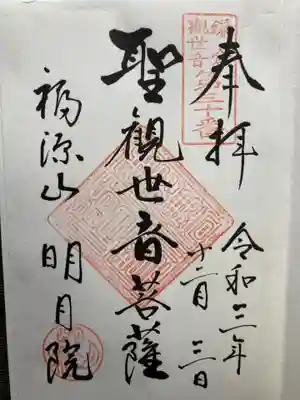 奉拝
観世音第三十番
令和三年
十二月三日
聖觀世音菩薩
福源山 明月院